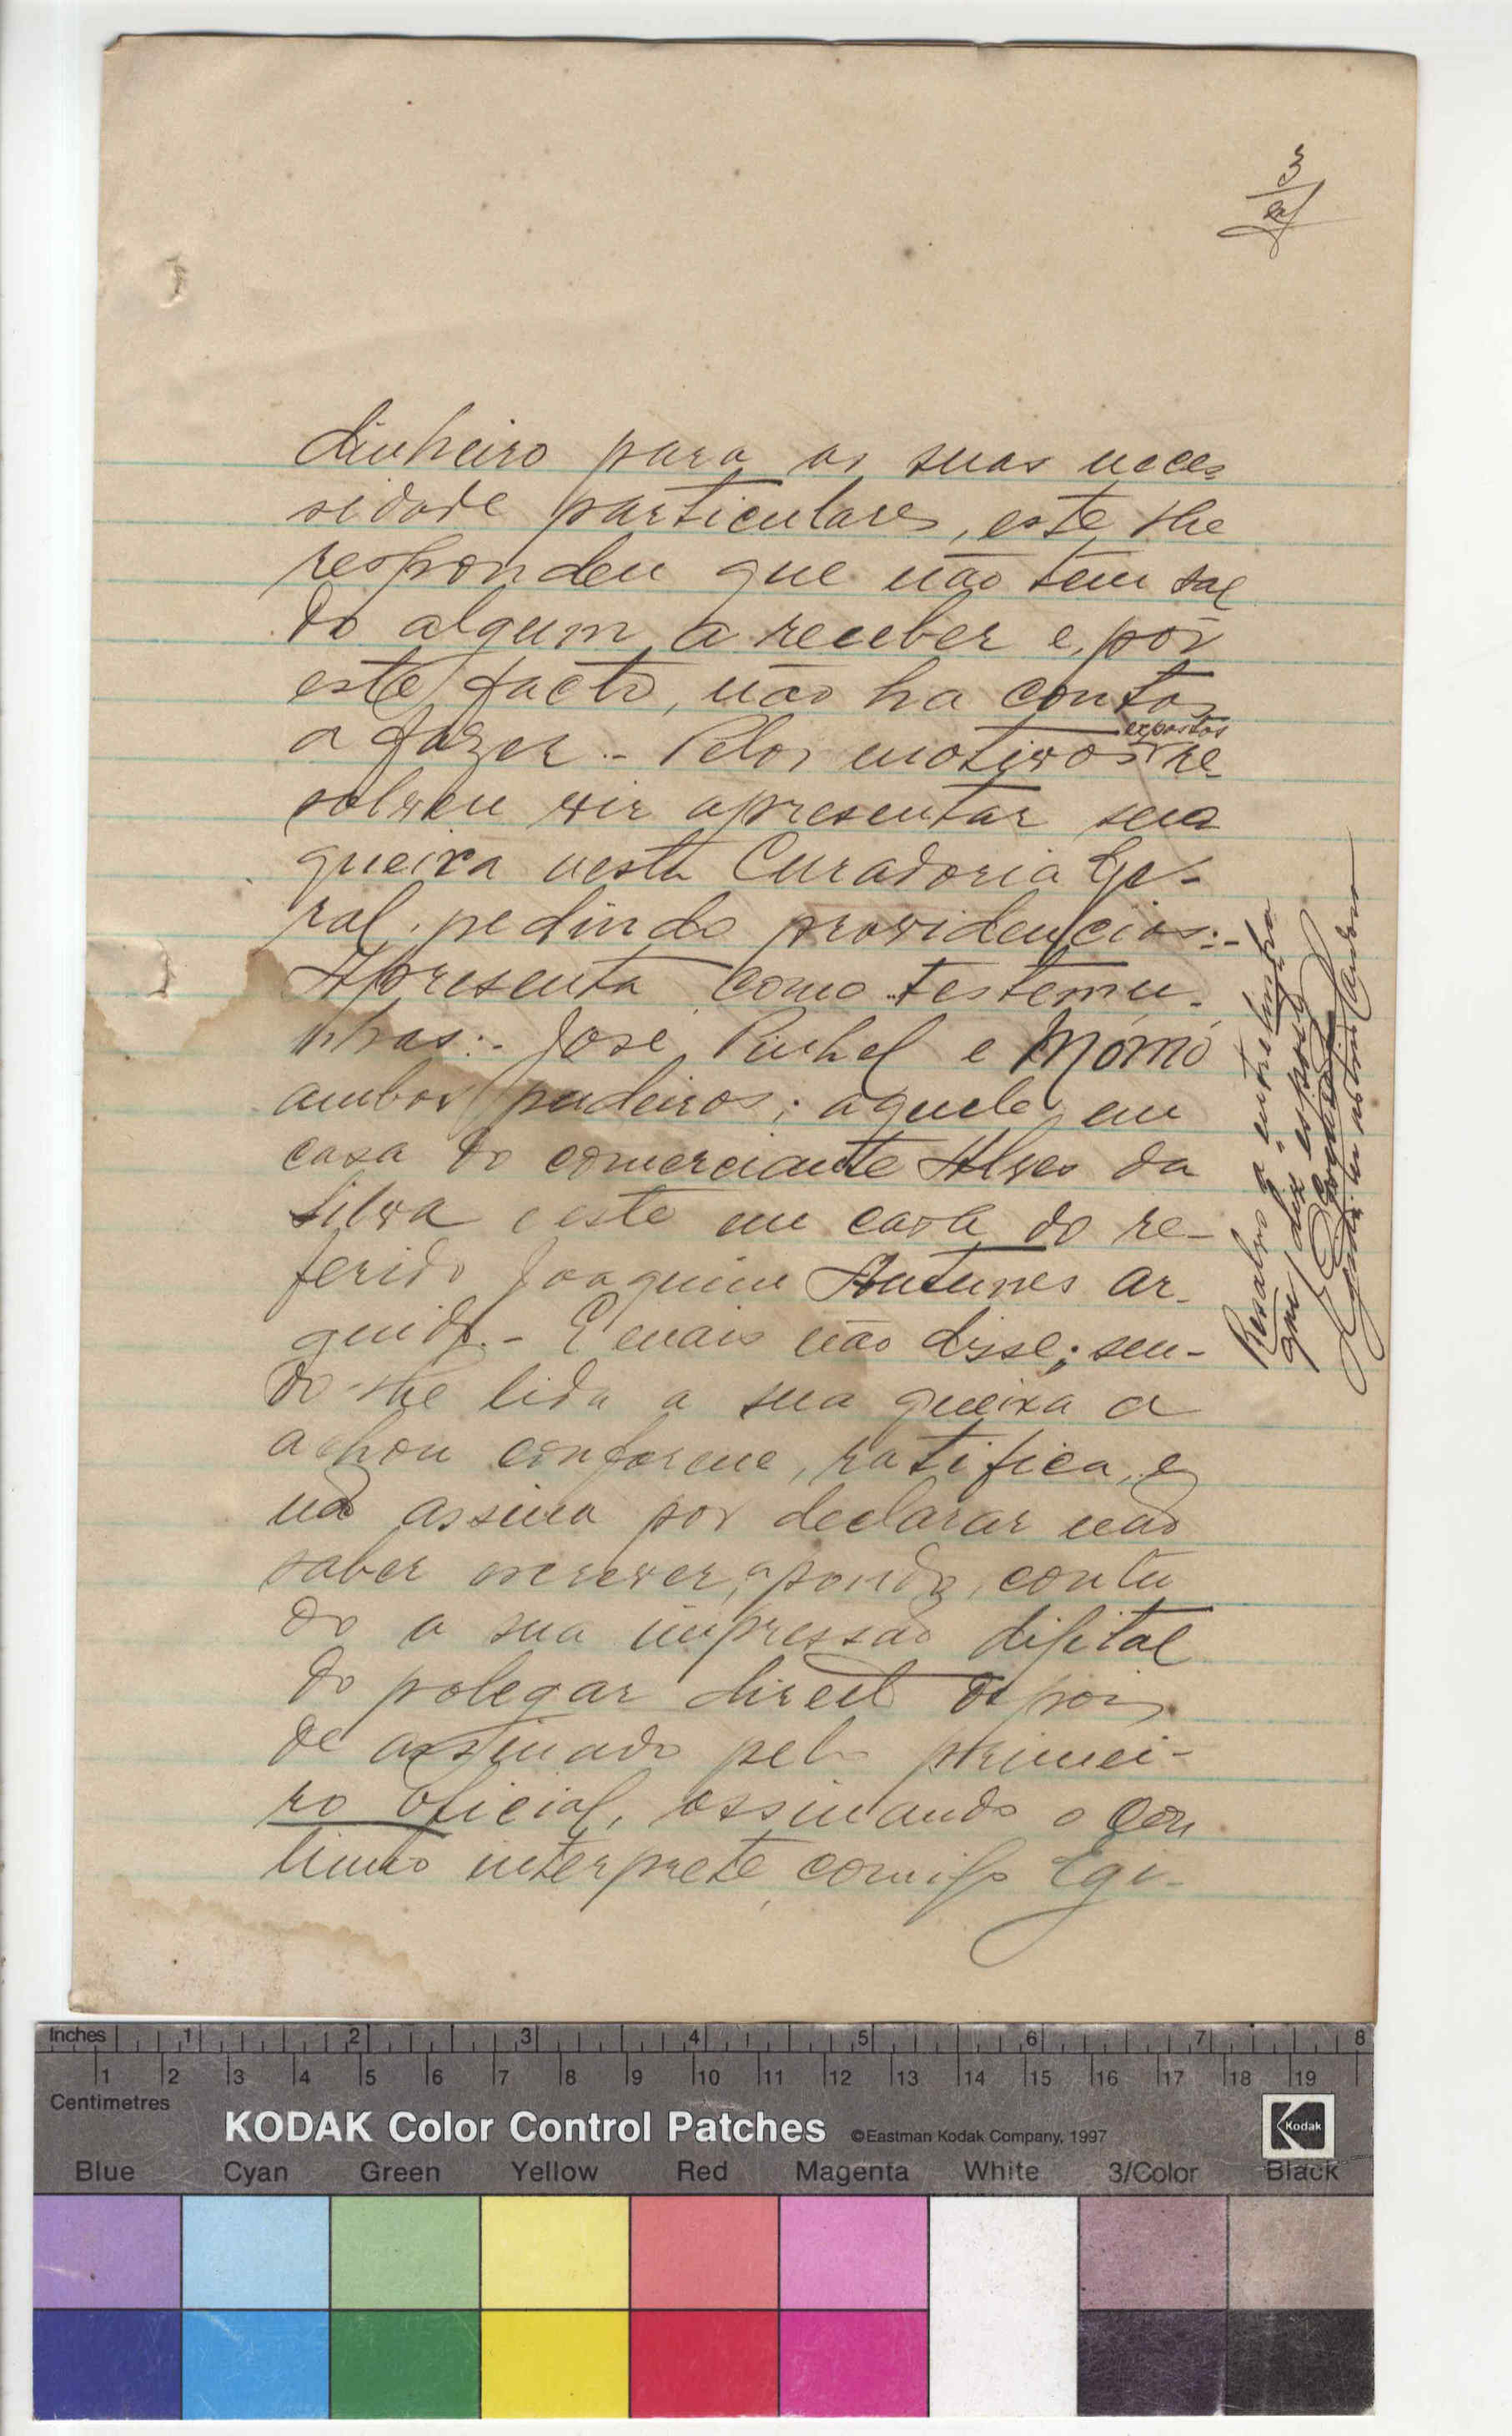 3
dinheiro para as suas neces
sidade particulares, este lhe
respondeu que não tem sal
do algum a receber e, por
este facto, não ha contas
a fazer. - Pelos motivos expostos re
solveu vir apresentar sua
queixa nesta Curadoria Ge-
ral, pedindo providencias:-
Apresenta como testemu-
nhas:- José Pinhel e Mómó
ambos padeiros; aquele em
casa do comerciante Alves da
Silva e este em casa do re-
ferido Joaquim Antunes ar-
guido. - E mais não disse; sen-
do-lhe lida a sua queixa a
achou conforme, ratifica, e
não assina por declarar não
saber escrever, apondo, contu
do a sua impressão digital
do polegar direito depois
de assinado pelo primei-
ro oficial, assinando o con
tinuo interprete comigo Egi-
Resalvo a entrelinha
que diz expostos
Inches 1 2 3 4 5 6 7 8
1 2 3 4 5 6 7 8 9 10 11 12 13 14 15 16 17 18 19
Centimetres
KODAK Color Control Patches ©Eastman Kodak Company, 1997
Kodak
Blue Cyan Green Yellow Red Magenta White 3/Color Black